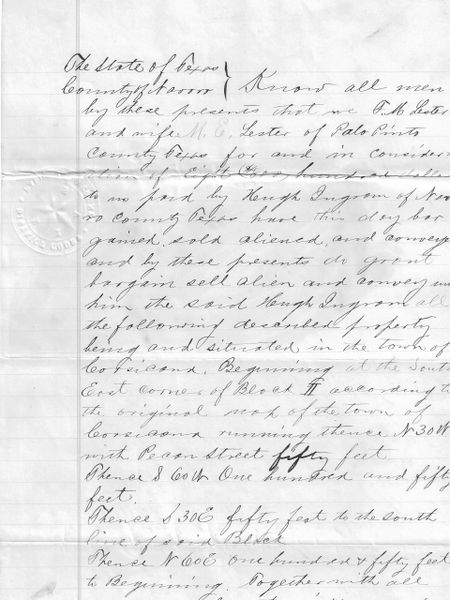 The State of Texas
County of Navarro } Know all men
by these presents that we F. M. Lester
and wife M. E. Lester of Palo Pinto
County Texas for and in consider-
ation of Eight hundred dolla
to us paid by Hugh Ingram of Nav
ro County Texas have this day bar
gained, sold aliened, and convey
and by these presents do grant
bargain sell alien and convey un
him the said Hugh Ingram all
the following described property
being and situated in the town of
Corsicana. Beginning at the South
East corner of Block according to
the original map of the town of
Corsicana running thence N 30 W
with Pecan Street fifty feet
Thence S 60 W One hundred and fifty
feet.
Thence S 30 E fifty feet to the south
line of said Block
Thence N 60 E one hundred & fifty feet
to Beginning. Together with all